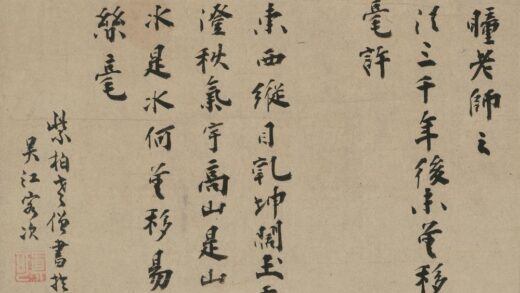 瞳老師之
法三千年後未曾移
毫許
東西縱目乾坤闊玉
澄秋氣宇高山是山
水是水何曾移易
絲毫
紫柏老僧書於
吳江客次